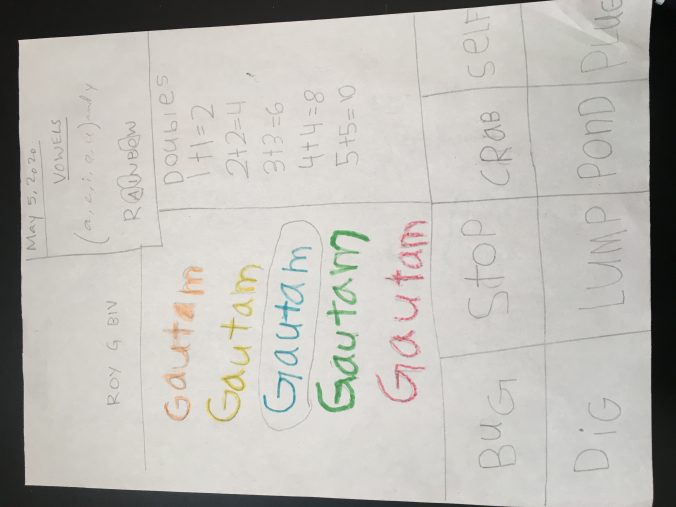 May 5, 2020
VOWELS
(a, e, i, o, u) and y
RAINBOW
ROY G BIV
Gautam
Gautam
Gautam
Gautam
Gautam
Doubles
1+1=2
2+2=4
3+3=6
4+4=8
5+5=10
BuG STOP CRAB SELF
DiG LUMP POND PLUG